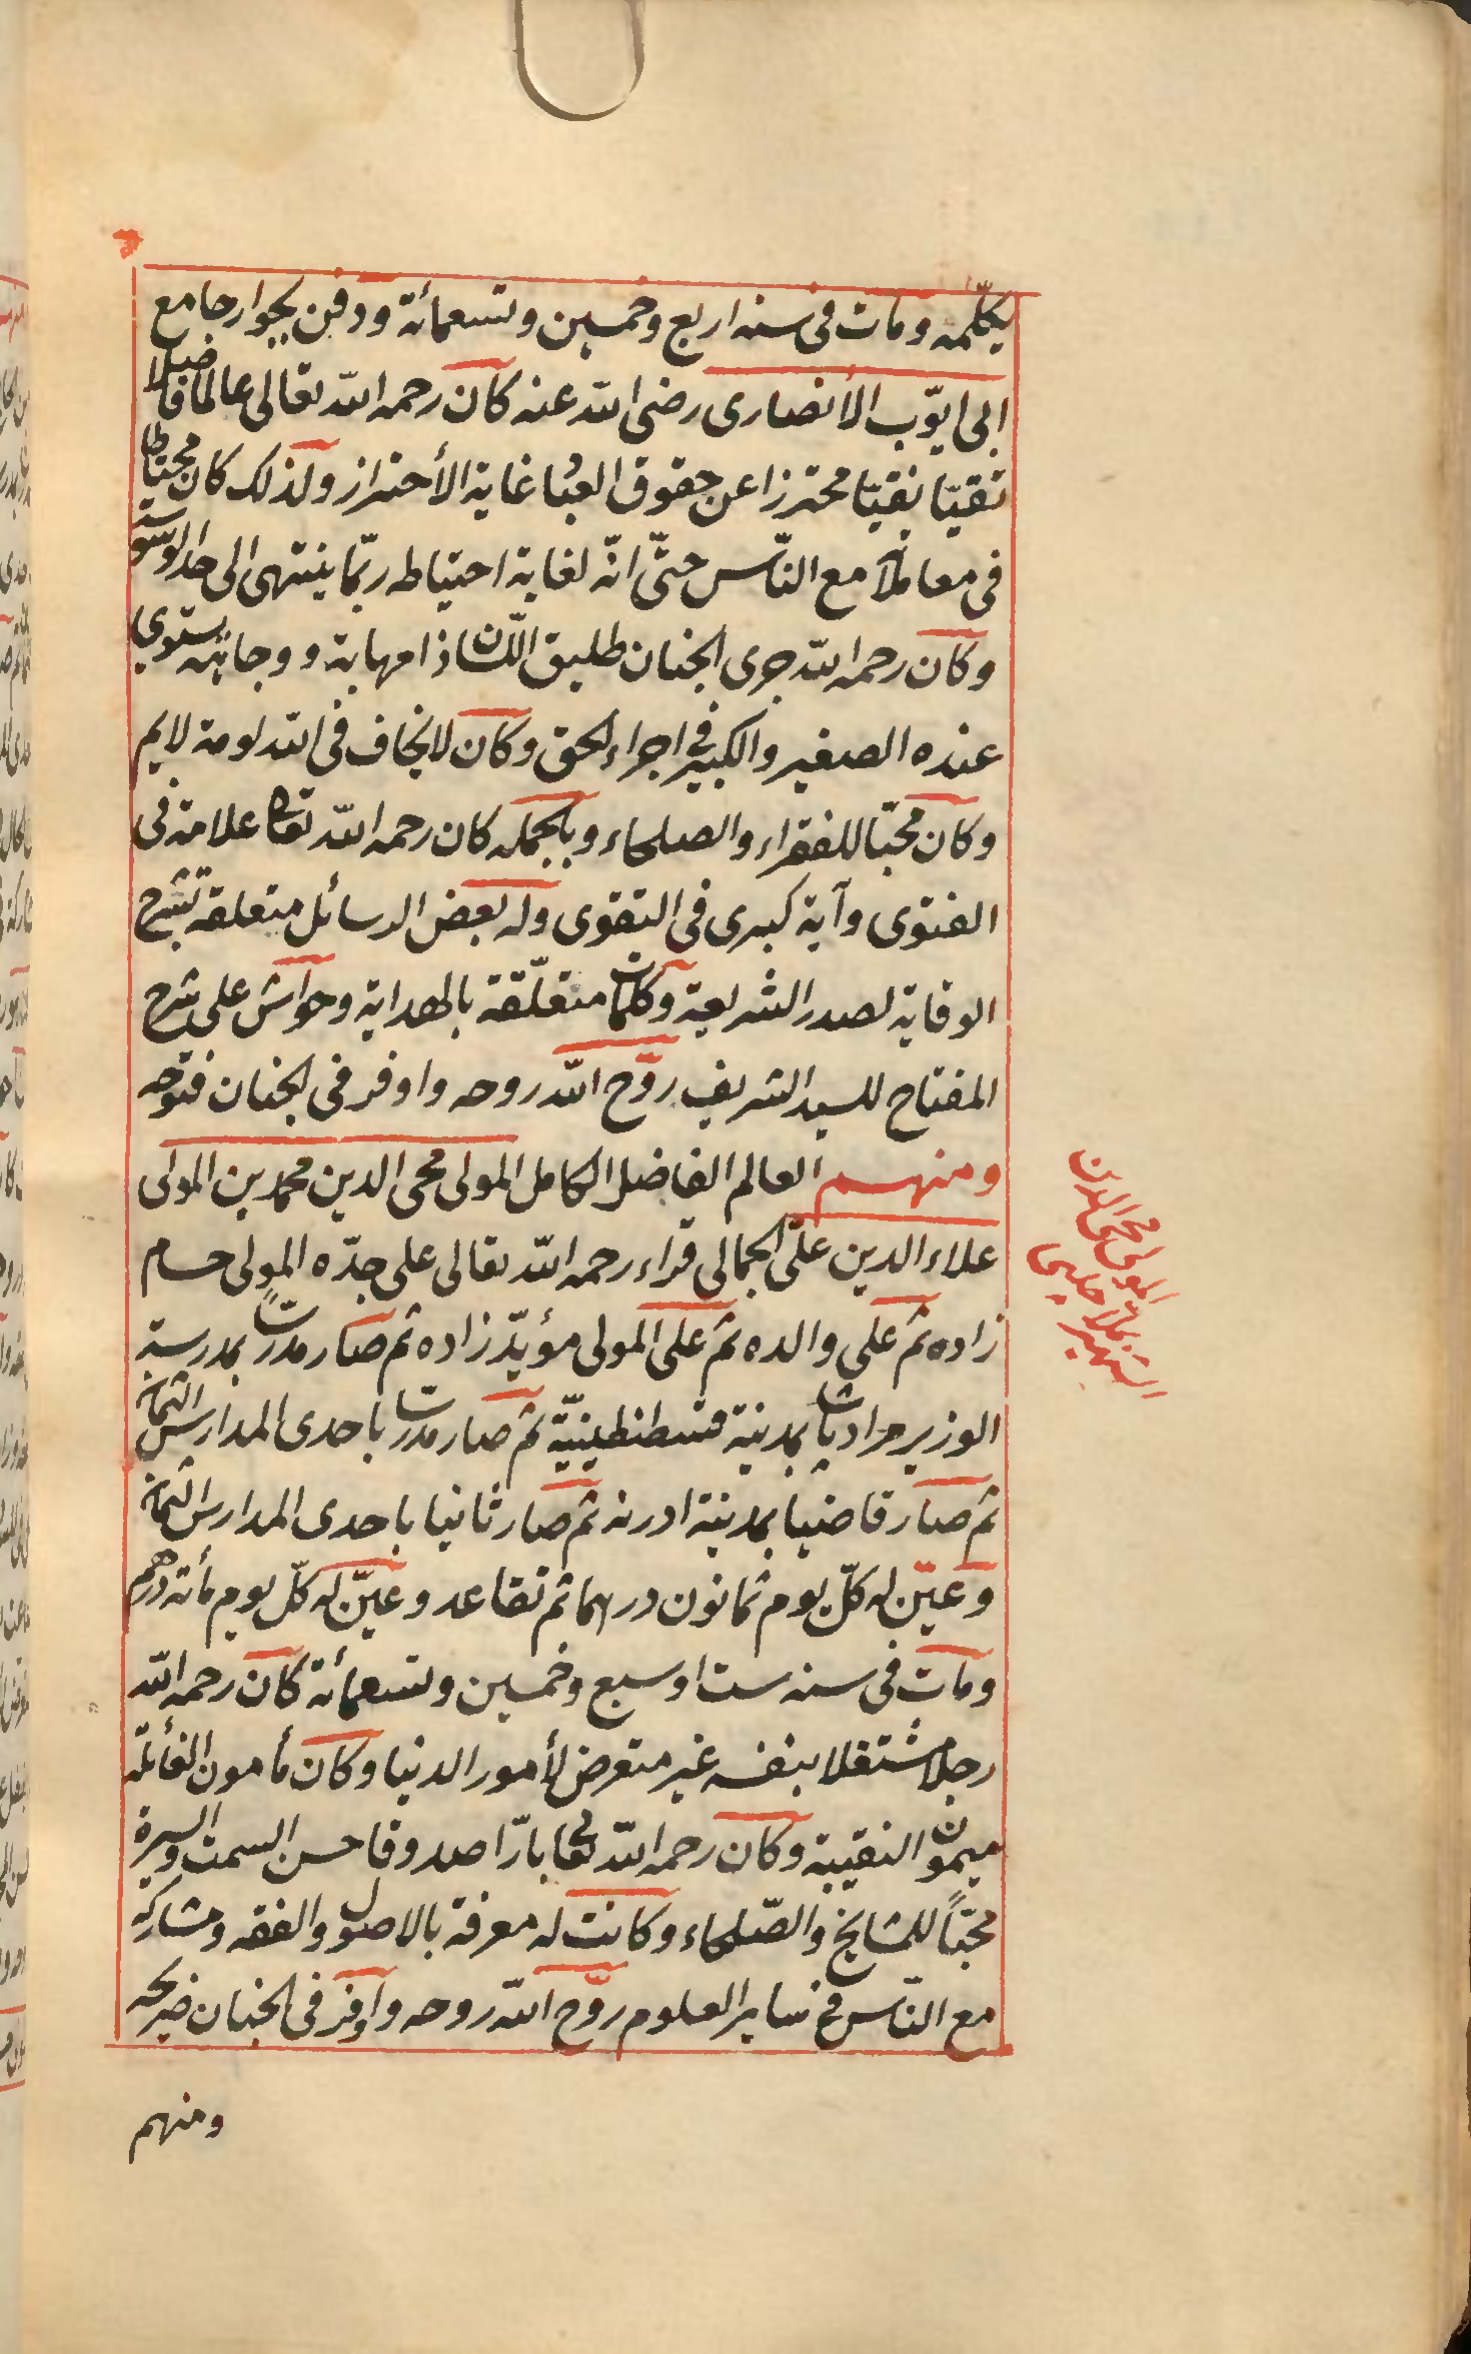 يكلّمه ومات فى سنه اربع وخمسين وتسعمائة ودفن بجوار جامع
ابى ايّوب الأنصارى رضى الله عنه كان رحمه الله تعالى عالما فاضلا
تقيّا نقيّا محترزا عن حقوق العباد غاية الأحتراز ولذلك كان محتاطا
فى معاملاته مع النّاس حتّى انّه لغاية احتياطه ربّما ينتهى الى حد الوسوسة
وكان رحمه الله جرى الجنان طليق اللّسان ذا مهابة ووجاهة يستوي
عنده الصغير والكبير فى اجراء الحق وكان لا يخاف فى الله لومة لايم
وكان محبّا للفقراء والصلحاء وبالجمله كان رحمه الله تعالى علامة فى
الفتوى وآية كبرى فى التقوى وله بعض الرسائل متعلقة بشرح
الوقاية لصدر الشريعة وكلمات متعلّقة بالهداية وحواش على شرح
المفتاح للسيد الشريف روّح الله روحه واوفر فى الجنان فتوحه
ومنهم العالم الفاضل الكامل المولى محى الدين محمد بن المولى
علاء الدين على الجمالى قراء رحمه الله تعالى على جدّه المولى حسام
زاده ثم على والده ثم على المولى مؤيّد زاده ثم صار مدرسا بمدرسة
الوزير مراد پاشا بمدينة قسطنطينيّة ثم صار مدرسا باحدى المدارس الثمان
ثم صار قاضيا بمدينة ادرنه ثم صار ثانيا باحدى المدارس الثمان
وعيّن له كلّ يوم ثمانون درهما ثم تقاعد وعيّن له كلّ يوم مأئة درهم
ومات فى سنه ست او سبع وخمسين وتسعمائة كان رحمه الله
رجلا مشتغلا بنفسه غير متعرض لأمور الدنيا وكان مأمون الغأئلة
ميمون النقيبة وكان رحمه الله تعالى بارّا صدوقا حسن السمت والسيرة
محبّاً للمشايخ والصّلحاء وكانت له معرفة بالاصول والفقه ومشاركه
مع النّاس فى ساير العلوم روّح الله روحه واوفر فى الجنان ضريحه
ومنهم
المولى محى الدين
الشهير بملا چلبى